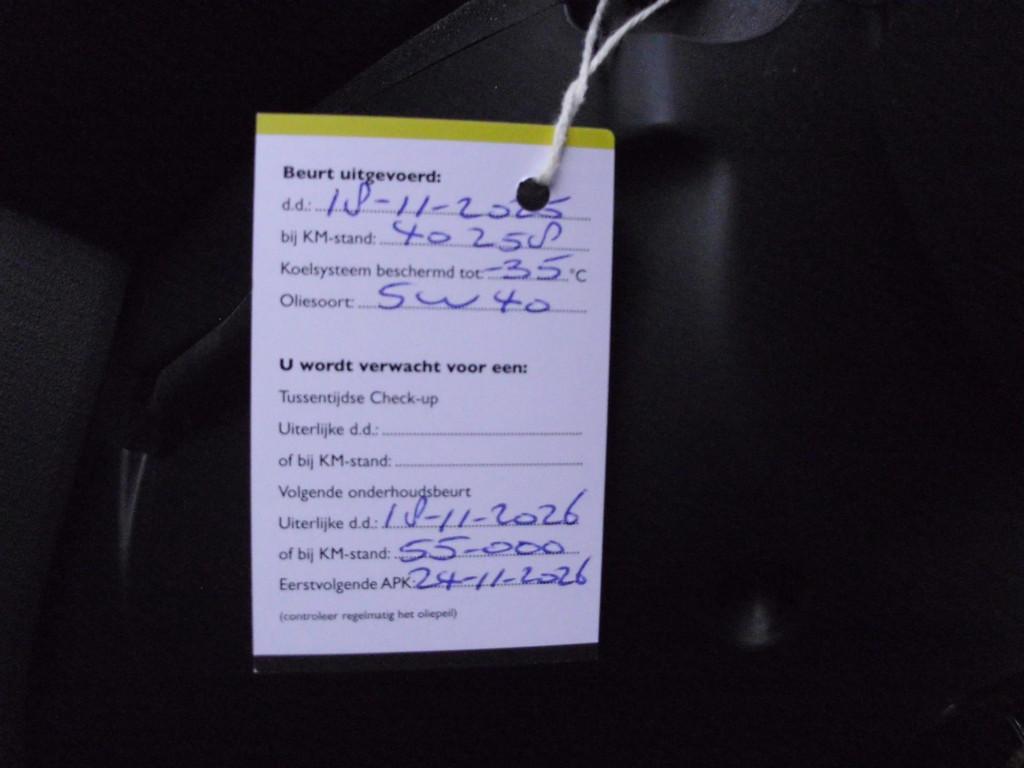 Beurt uitgevoerd:
d.d.: 18-11-2025
bij KM-stand: 40258
Koelsysteem beschermd tot: -35 °C
Oliesoort: 5W40
U wordt verwacht voor een:
Tussentijdse Check-up
Uiterlijke d.d.:
of bij KM-stand:
Volgende onderhoudsbeurt
Uiterlijke d.d.: 18-11-2026
of bij KM-stand: 55-000
Eerstvolgende APK: 24-11-2026
(controleer regelmatig het oliepeil)